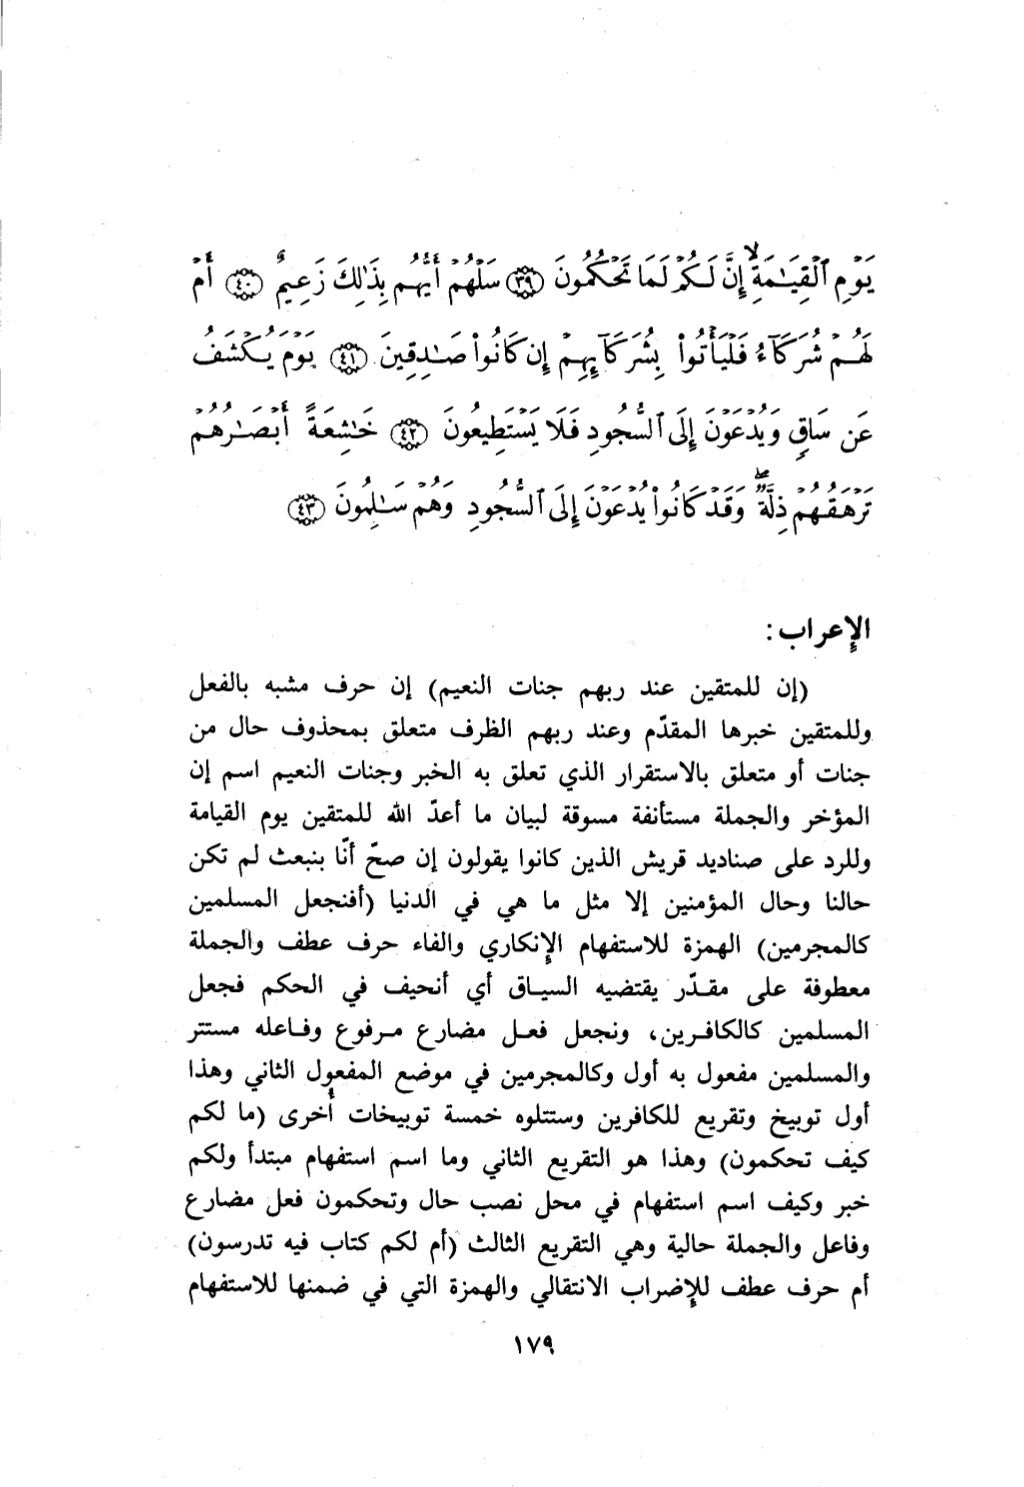 يَوْمِ ٱلْقِيَـٰمَةِ ۙ إِنَّ لَكُمْ لَمَا تَحْكُمُونَ ﴿٣٩﴾ سَلْهُمْ أَيُّهُم بِذَٰلِكَ زَعِيمٌ ﴿٤٠﴾ أَمْ
لَهُمْ شُرَكَآءُ فَلْيَأْتُوا۟ بِشُرَكَآئِهِمْ إِن كَانُوا۟ صَـٰدِقِينَ ﴿٤١﴾ يَوْمَ يُكْشَفُ
عَن سَاقٍ وَيُدْعَوْنَ إِلَى ٱلسُّجُودِ فَلَا يَسْتَطِيعُونَ ﴿٤٢﴾ خَـٰشِعَةً أَبْصَـٰرُهُمْ
تَرْهَقُهُمْ ذِلَّةٌ ۖ وَقَدْ كَانُوا۟ يُدْعَوْنَ إِلَى ٱلسُّجُودِ وَهُمْ سَـٰلِمُونَ ﴿٤٣﴾
الإعراب:
(إن للمتقين عند ربهم جنات النعيم) إن حرف مشبه بالفعل
وللمتقين خبرها المقدّم وعند ربهم الظرف متعلق بمحذوف حال من
جنات أو متعلق بالاستقرار الذي تعلق به الخبر وجنات النعيم اسم إن
المؤخر والجملة مستأنفة مسوقة لبيان ما أعدّ الله للمتقين يوم القيامة
وللرد على صناديد قريش الذين كانوا يقولون إن صحّ أنّا بنبعث لم تكن
حالنا وحال المؤمنين إلا مثل ما هي في الدنيا (أفنجعل المسلمين
كالمجرمين) الهمزة للاستفهام الإنكاري والفاء حرف عطف والجملة
معطوفة على مقدّر يقتضيه السياق أي أنحيف في الحكم فجعل
المسلمين كالكافرين، ونجعل فعل مضارع مرفوع وفاعله مستتر
والمسلمين مفعول به أول وكالمجرمين في موضع المفعول الثاني وهذا
أول توبيخ وتقريع للكافرين وستتلوه خمسة توبيخات أخرى (ما لكم
كيف تحكمون) وهذا هو التقريع الثاني وما اسم استفهام مبتدأ ولكم
خبر وكيف اسم استفهام في محل نصب حال وتحكمون فعل مضارع
وفاعل والجملة حالية وهي التقريع الثالث (أم لكم كتاب فيه تدرسون)
أم حرف عطف للإضراب الانتقالي والهمزة التي في ضمنها للاستفهام
١٧٩